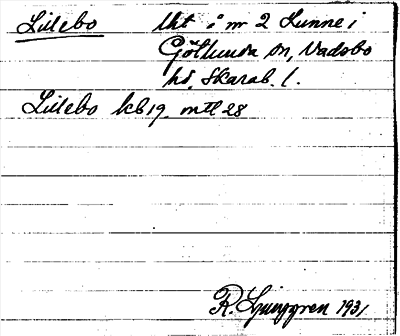 Lillebo lht i nr 2 Lunne i
Götlunda sn, Vadsbo
hd, Skarab. l.
Lillebo kb 19. mtl 28
R. Ljunggren 1931